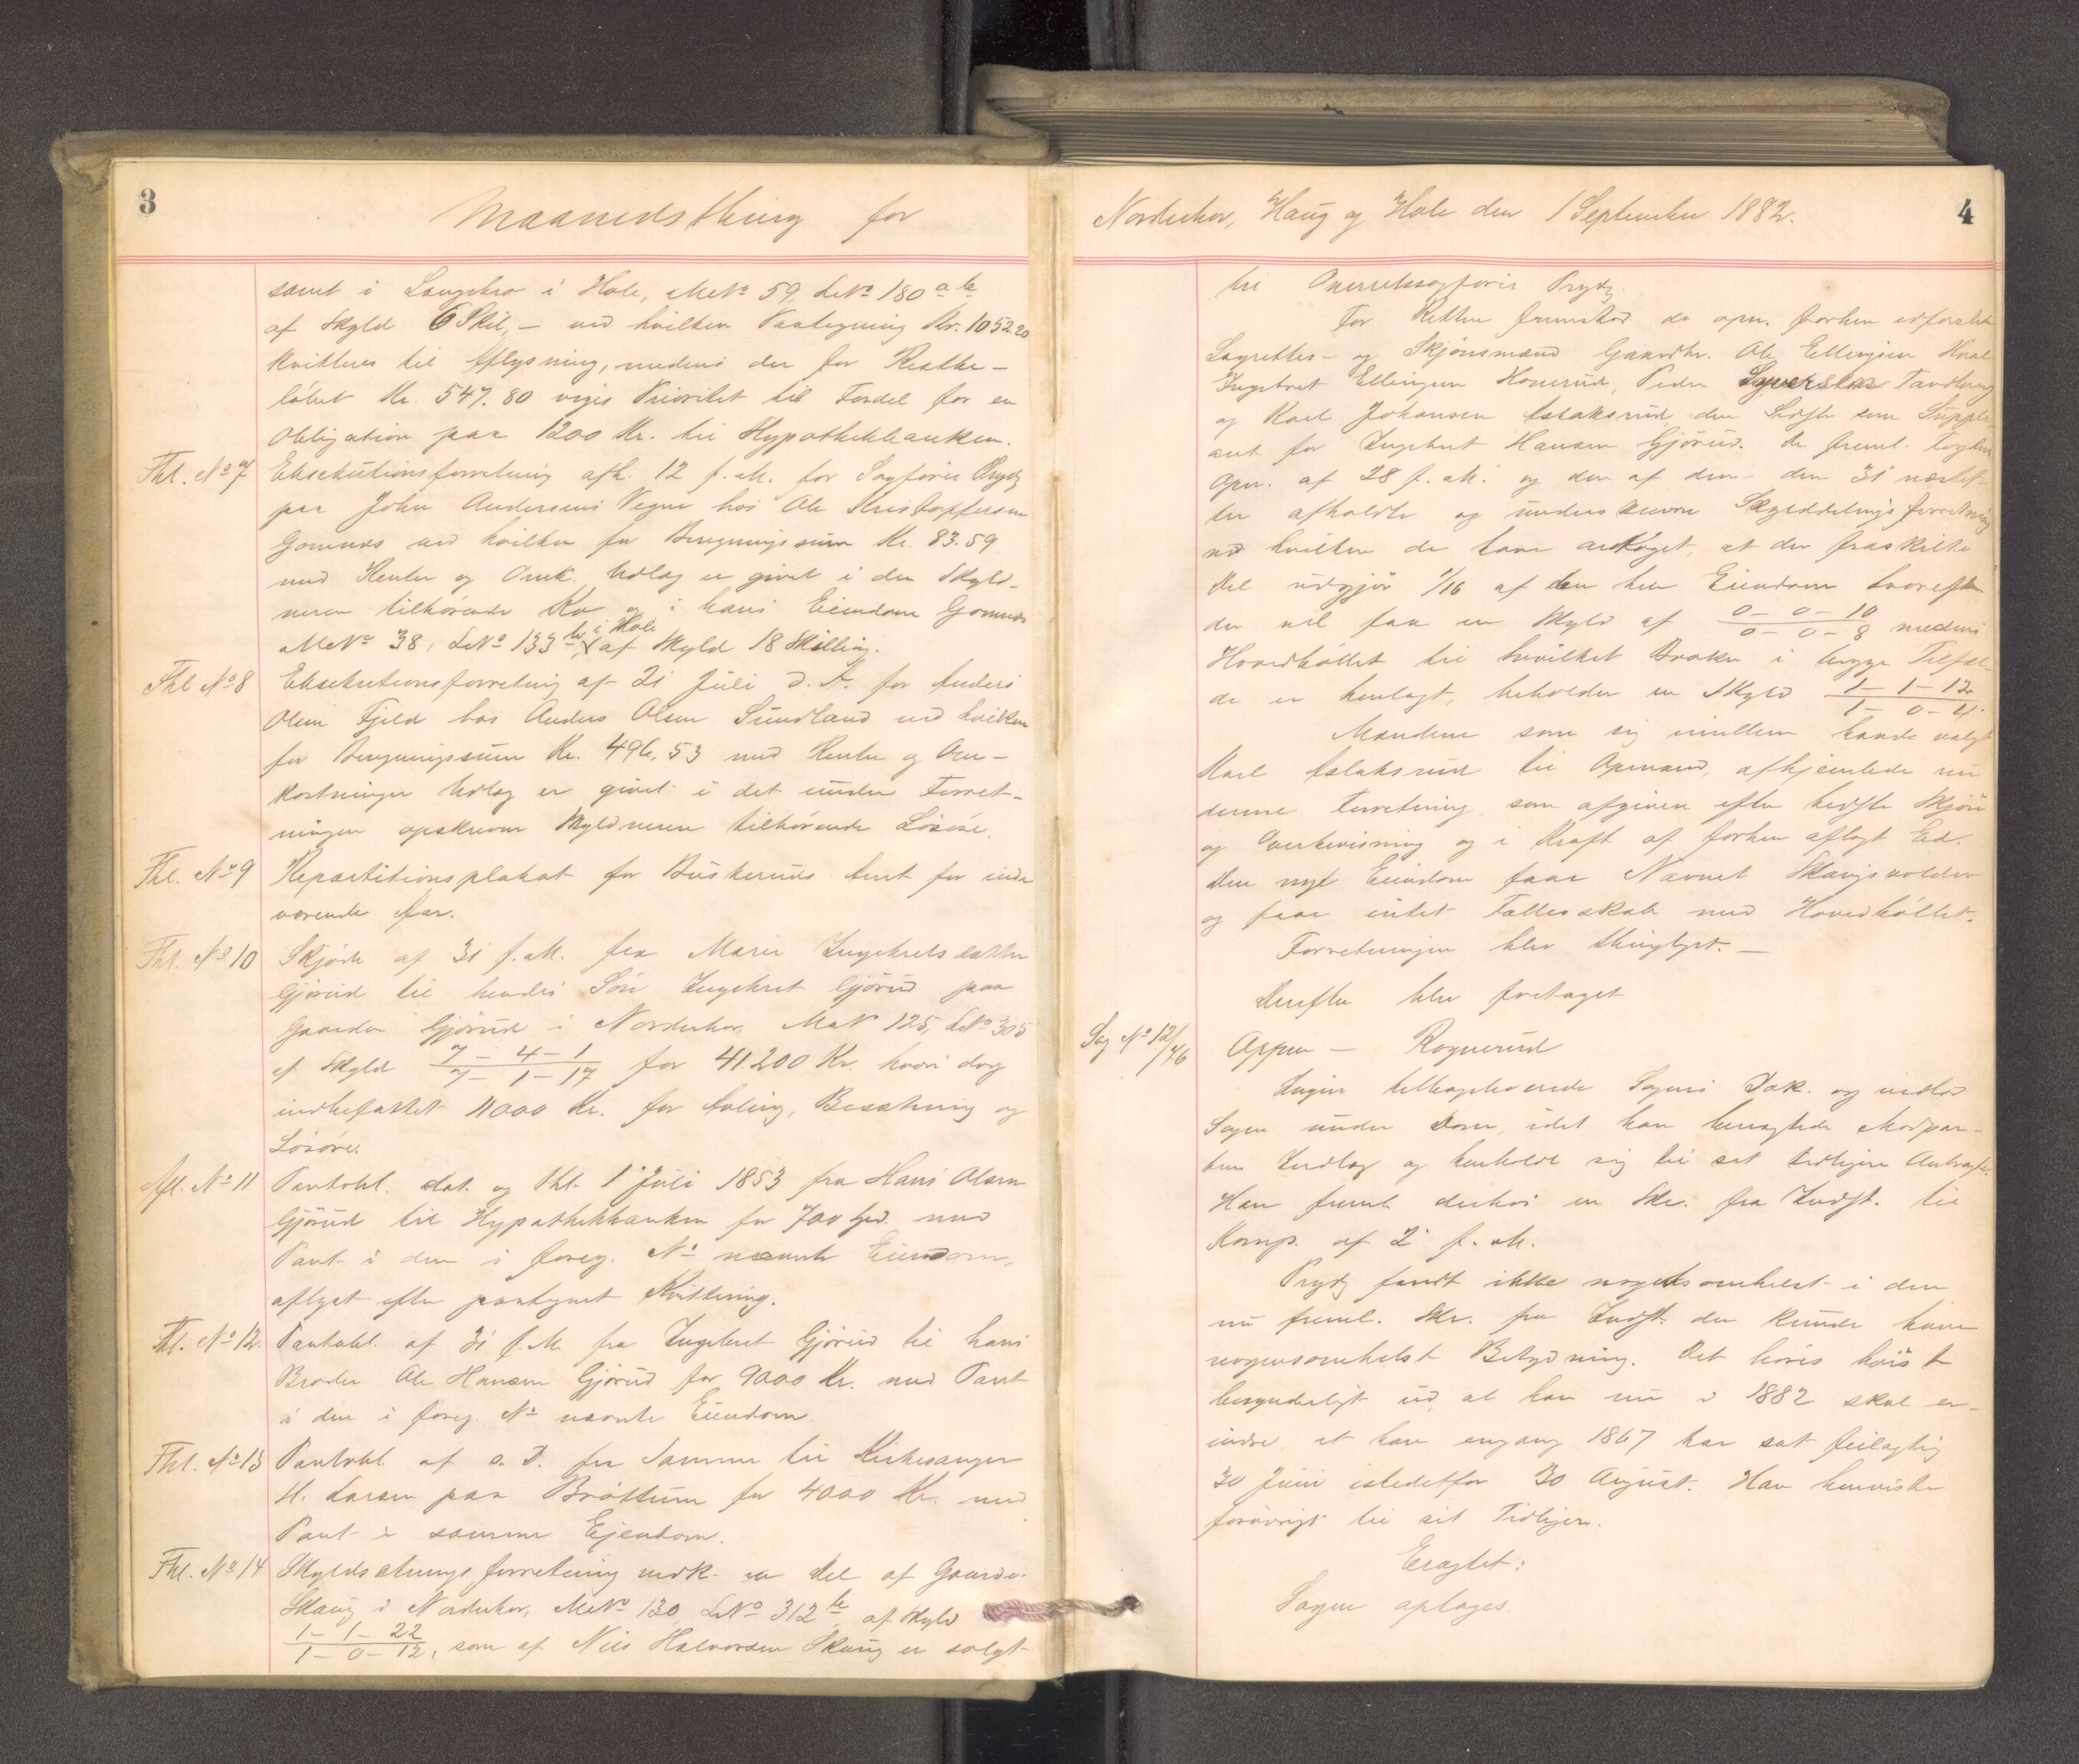 3
Maanedsthing for
samt i Langebro i Hole, MNo 59, LNo 180 a b
af Skyld 6 Skil, – ved hvilken Paategning Kr. 1052.20
kvitteres til Aflysning, medens der for Restbe-
løbet Kr. 547.80 viges Prioritet til Fordel for en
Obligation paa 1200 Kr. til Hypothekbanken.
Thl. No 7 Eksekutionsforretning afh. 12 f. M. for Sagfører Prydz
paa John Andersens Vegne hos Ole Kristoffersen
Gomnæs ved hvilken for Beregningssum Kr. 83.59
med Renter og Omk. Udlæg er givet i den Skyld-
neren tilhørende Ko og i hans Eiendom Gomnæs
MNo 38, LNo 133 b i Hole af Skyld 18 Skilling.
Thl No 8 Eksekutionsforretning af 21 Juli d. A. for Anders
Olsen Fjeld hos Anders Olsen Sundland ved hvilken
for Beregningssum Kr. 496,53 med Renter og Om-
kostninger Udlæg er givet i det under Forret-
ningen opskrevne Skyldneren tilhørende Løsøre.
Thl. No 9 Repartitionsplakat for Buskeruds Amt for inde
værende Aar.
Thl. No 10 Skjøde af 31 f. M. fra Maren Ingebretsdatter
Gjørud til hendes Søn Ingebret Gjørud paa
Gaarden Gjørud i Norderhov, MaN 125, LNo 305
af Skyld 7 – 4 – 1 / 7 – 1 – 17 for 41.200 Kr. hvori dog
indbefattet 11000 Kr. for Avling, Besætning og
Løsøre.
Afl. No 11 Pantobl. dat. og thl. 1 Juli 1853 fra Hans Olsen
Gjørud til Hypothekbanken for 700 Spd. med
Pant i den i foreg. No nævnte Eiendom,
aflyst efter paategnet Kvittering.
Thl. No 12. Pantobl. af 31 f. M. fra Ingebret Gjørud til hans
Broder Ole Hansen Gjørud for 9000 Kr. med Pant
i den i foreg. No nævnte Eiendom.
Thl. No 13 Pantobl. af s. D. fra Samme til Kirkesanger
H. Larsen paa Brøttum for 4000 Kr. med
Pant i samme Ejendom.
Thl. No 14 Skyldsætningsforretning vedk. en Del af Gaarden
Skaug i Norderhov, MNo 130, LNo 312 b af Skyld
1 – 1 – 22 / 1 – 0 – 12, som af Nils Halvorsen Skaug er solgt
Norderhov, Haug og Hole den 1 September 1882.
4
til Overretssagfører Prydz.
For Retten fremstod de opn. forhen edfæstede
Lagrettes- og Skjønsmænd Gaardbr. Ole Ellingsen Hval
Ingebret Ellingsen Honerud, Peder Tandberg
og Karl Johansen Aslaksrud, den Sidste som Supple
ant for Ingebret Hansen Gjørud. De freml. Fogdens
Opn. af 28 f. M. og den af dem den 31 næstef-
ter afholdte og underskrevne Skylddelingsforretning
ved hvilken de have antaget, at den fraskilte
Del udgjør 1/16 af den hele Eiendom hvorefter
den vil faa en Skyld af 0 – 0 – 10 / 0 – 0 – 8 medens
Hovedbøllet til hvilket Brøken i begge Tilfæl-
de er henlagt, beholder en Skyld 1 – 1 – 12 / 1 – 0 – 4
Mændene som sig imellem havde valgt
Karl Aslaksrud til Opmand, afhjemlede nu
denne Forretning, som afgiven efter bedste Skjøn
og Overbevisning og i Kraft af forhen aflagt Ed.
Den nye Eiendom faar Navnet Skaugsvolden
og faar intet Fællesskab med Hovedbøllet.
Forretningen blev thinglyst. –
Derefter blev foretaget
Sag No 12/46 Oppen – Rognerud
tilbageleverede Sagens Dok. og indlod
Sagen under Dom, idet han benægtede Modpar-
tens Indlæg og henholdt sig til sit tidligere Anbragte.
Han freml. derhos en Skr. fra Indst. til
Komp. af 2 f. M.
Prydz fandt ikke nogetsomhelst i den
nu freml. Skr. fra Indst. der kunde have
nogensomhelst Betydning. Det høres høist
besynderligt ud, at han nu i 1882 skal er-
indre, at han engang 1867 har sat feilagtig
30 Juni istedetfor 30 August. Han henviste
forøvrigt til sit Tidligere.
Eragtet:
Sagen optages.